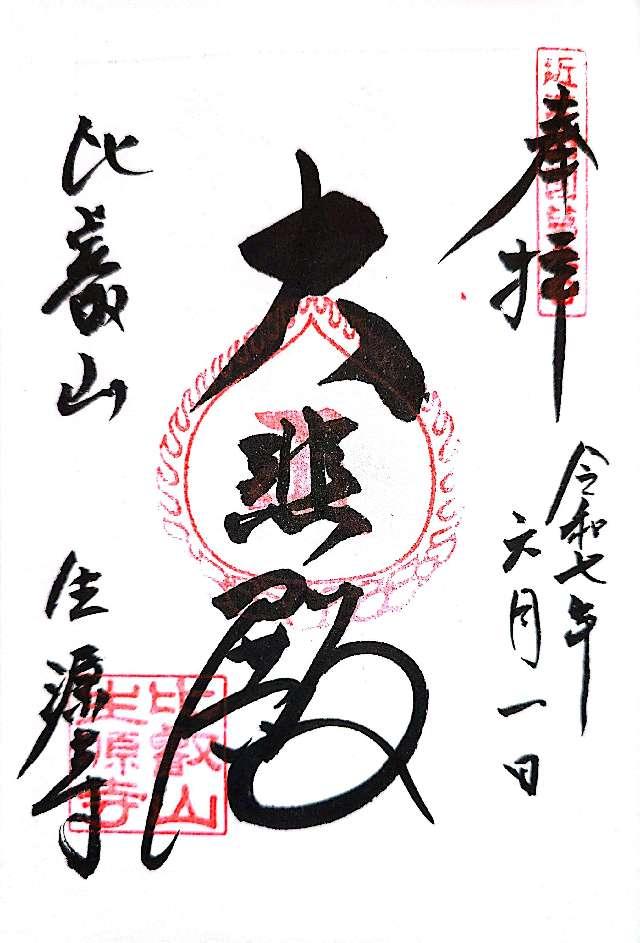 奉拝
令和七年
六月一日
大悲殿
比叡山
生源寺
比叡山
生源寺